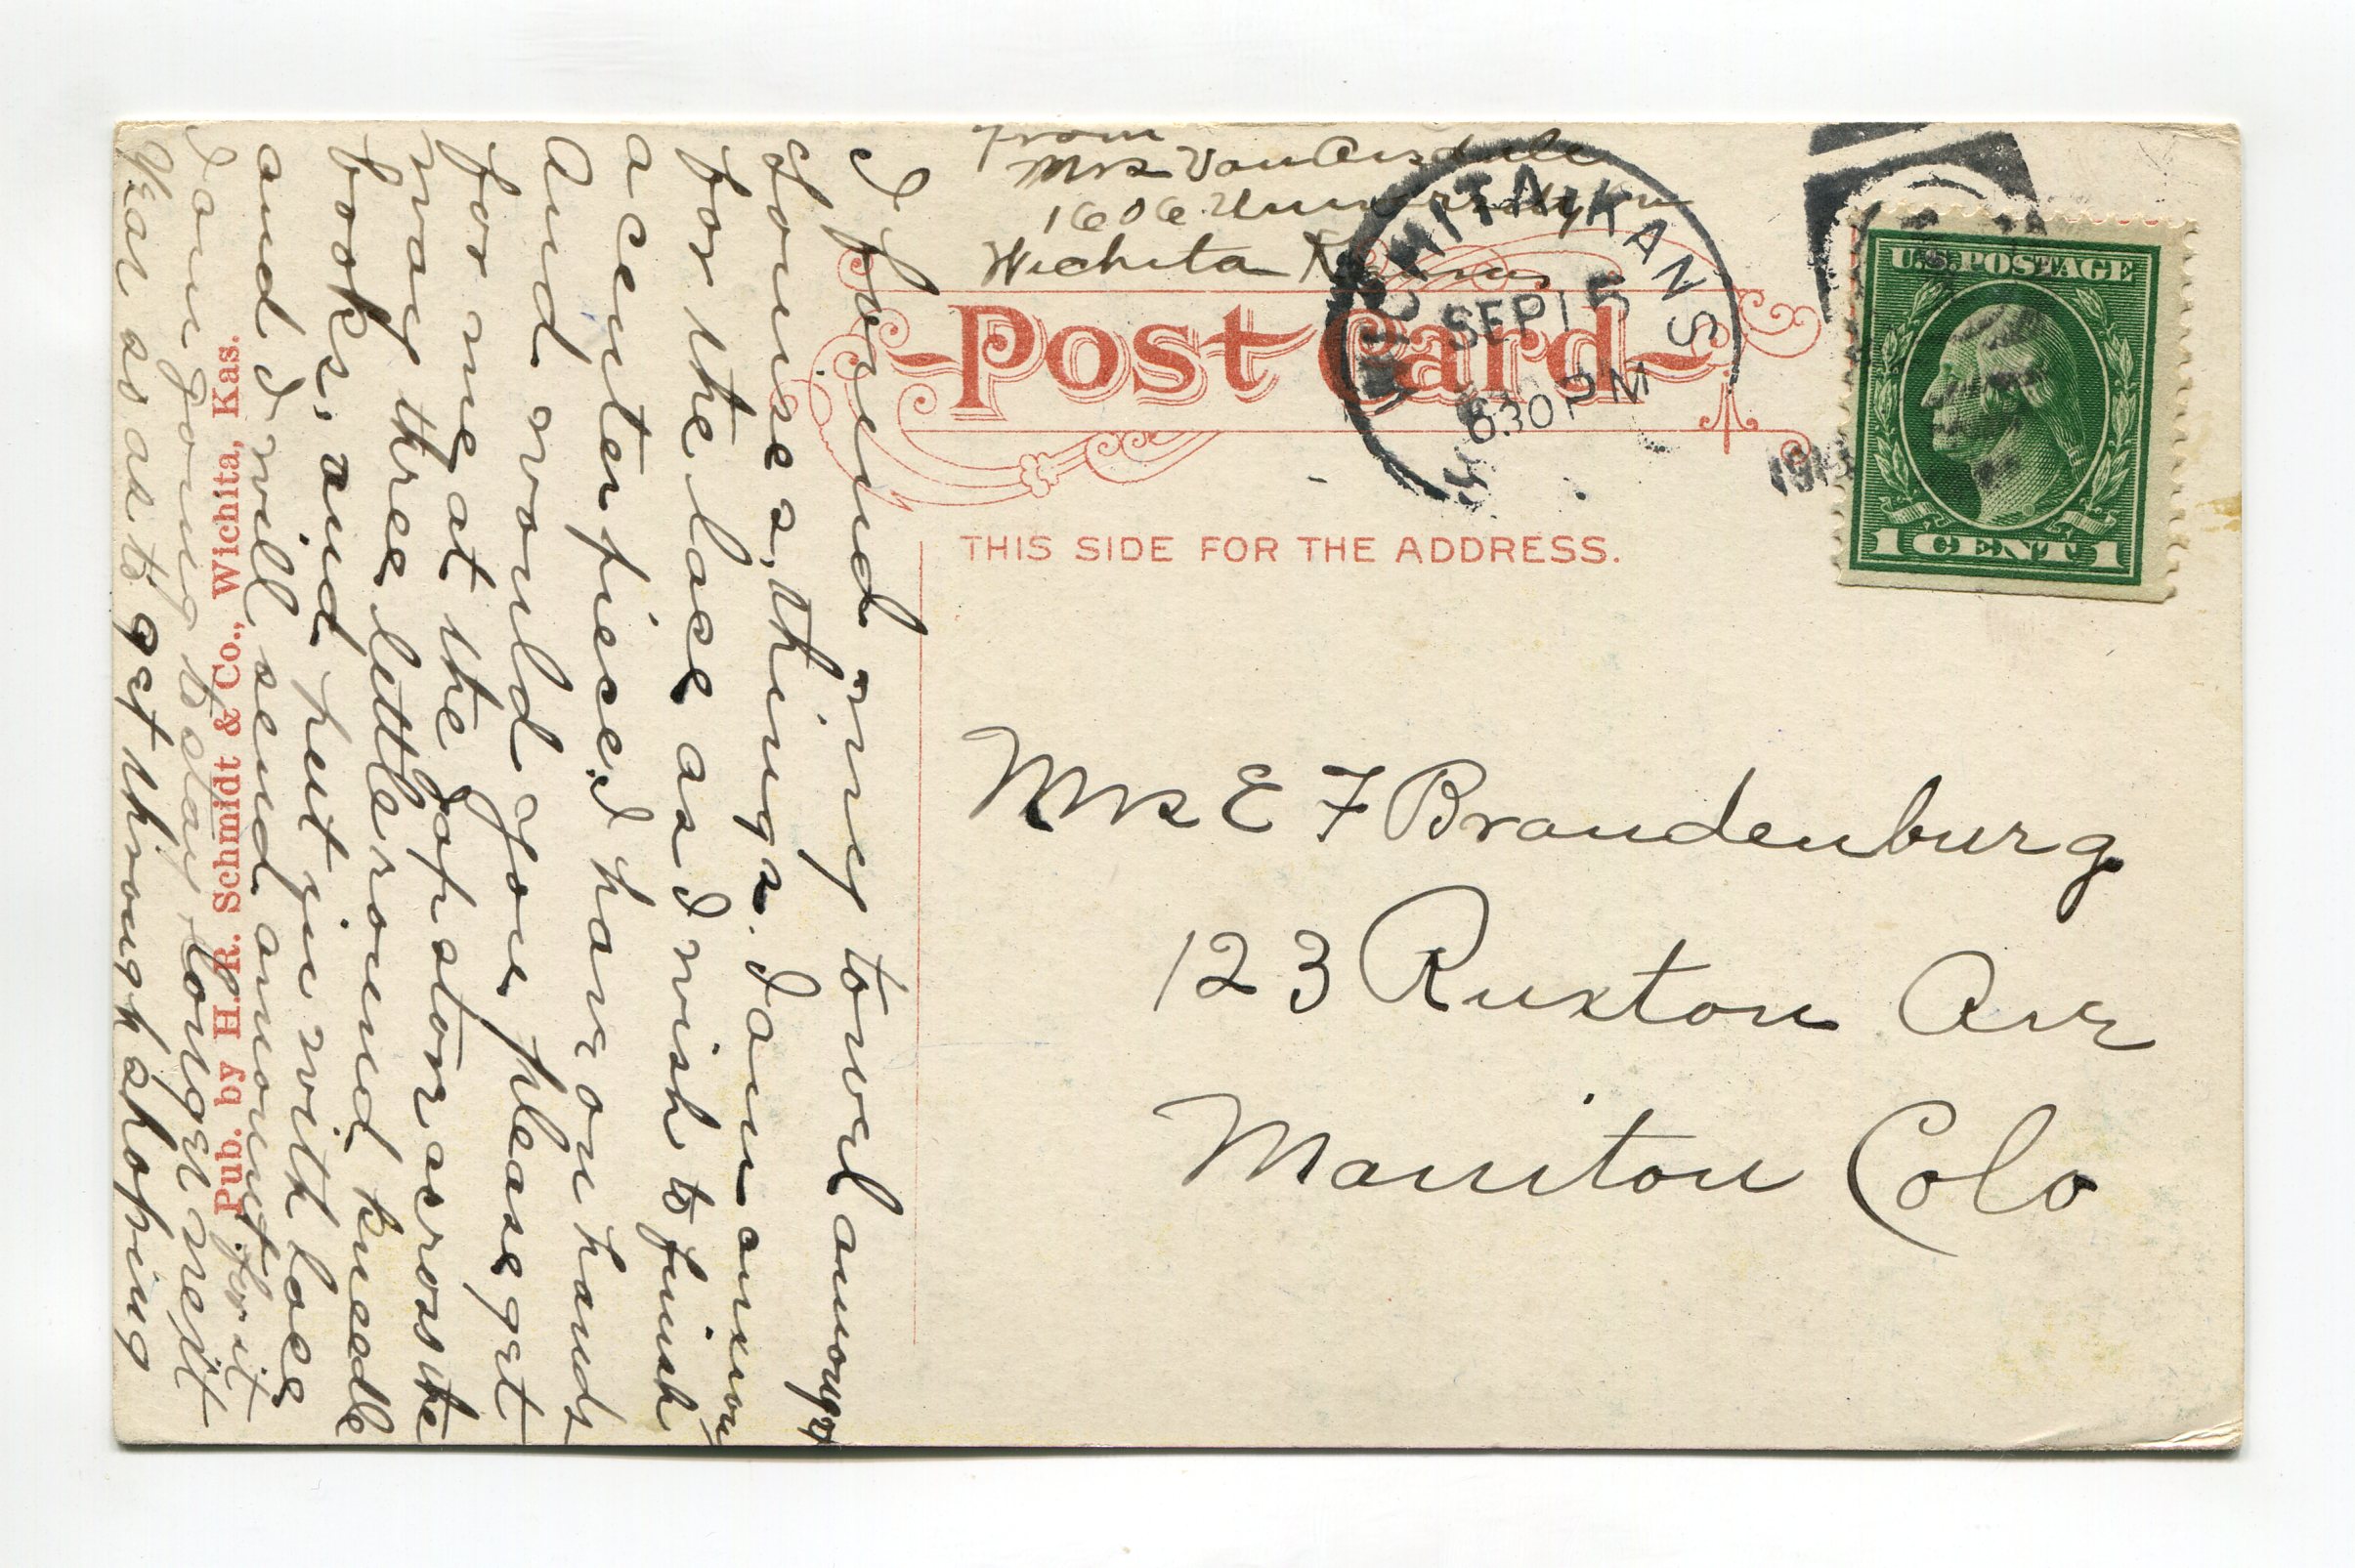 from
Mrs VanArsdale
1606 University
Wichita Kansas
Post Card
WICHITA, KANS
SEP 15
630 PM
U.S. POSTAGE
1 CENT 1
THIS SIDE FOR THE ADDRESS.
Mrs E F Brandenburg
123 Ruxton Ave
Manitou Colo
I found my towel amongst
yours, things. I am anxious
for the lace as I wish to finish
a centerpiece, I have on hands
And would you please get
for me at the Jap store across the
way three little round kneedle
books, and put in with lace
and I will send amount for it
I am going to stay longer next
year so as to get through shoping
Pub. by H. R. Schmidt & Co., Wichita, Kas.